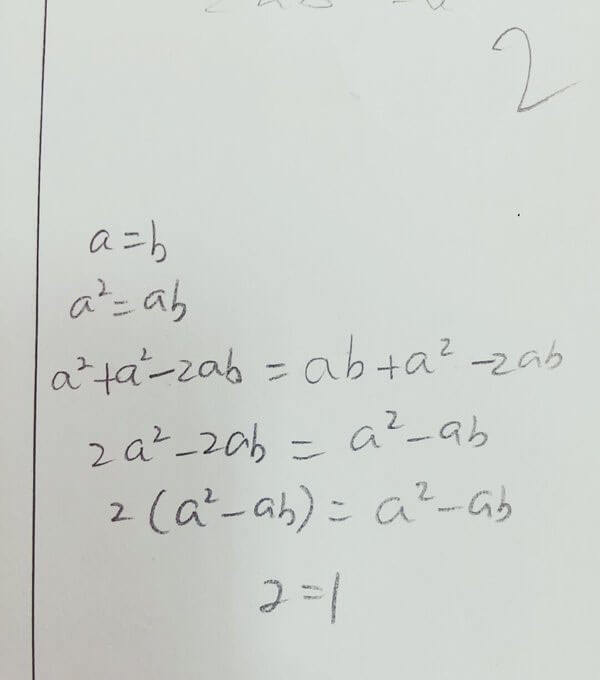 2
a=b
a²=ab
a²+a²-2ab = ab+a²-2ab
2a²-2ab = a²-ab
2(a²-ab) = a²-ab
2=1